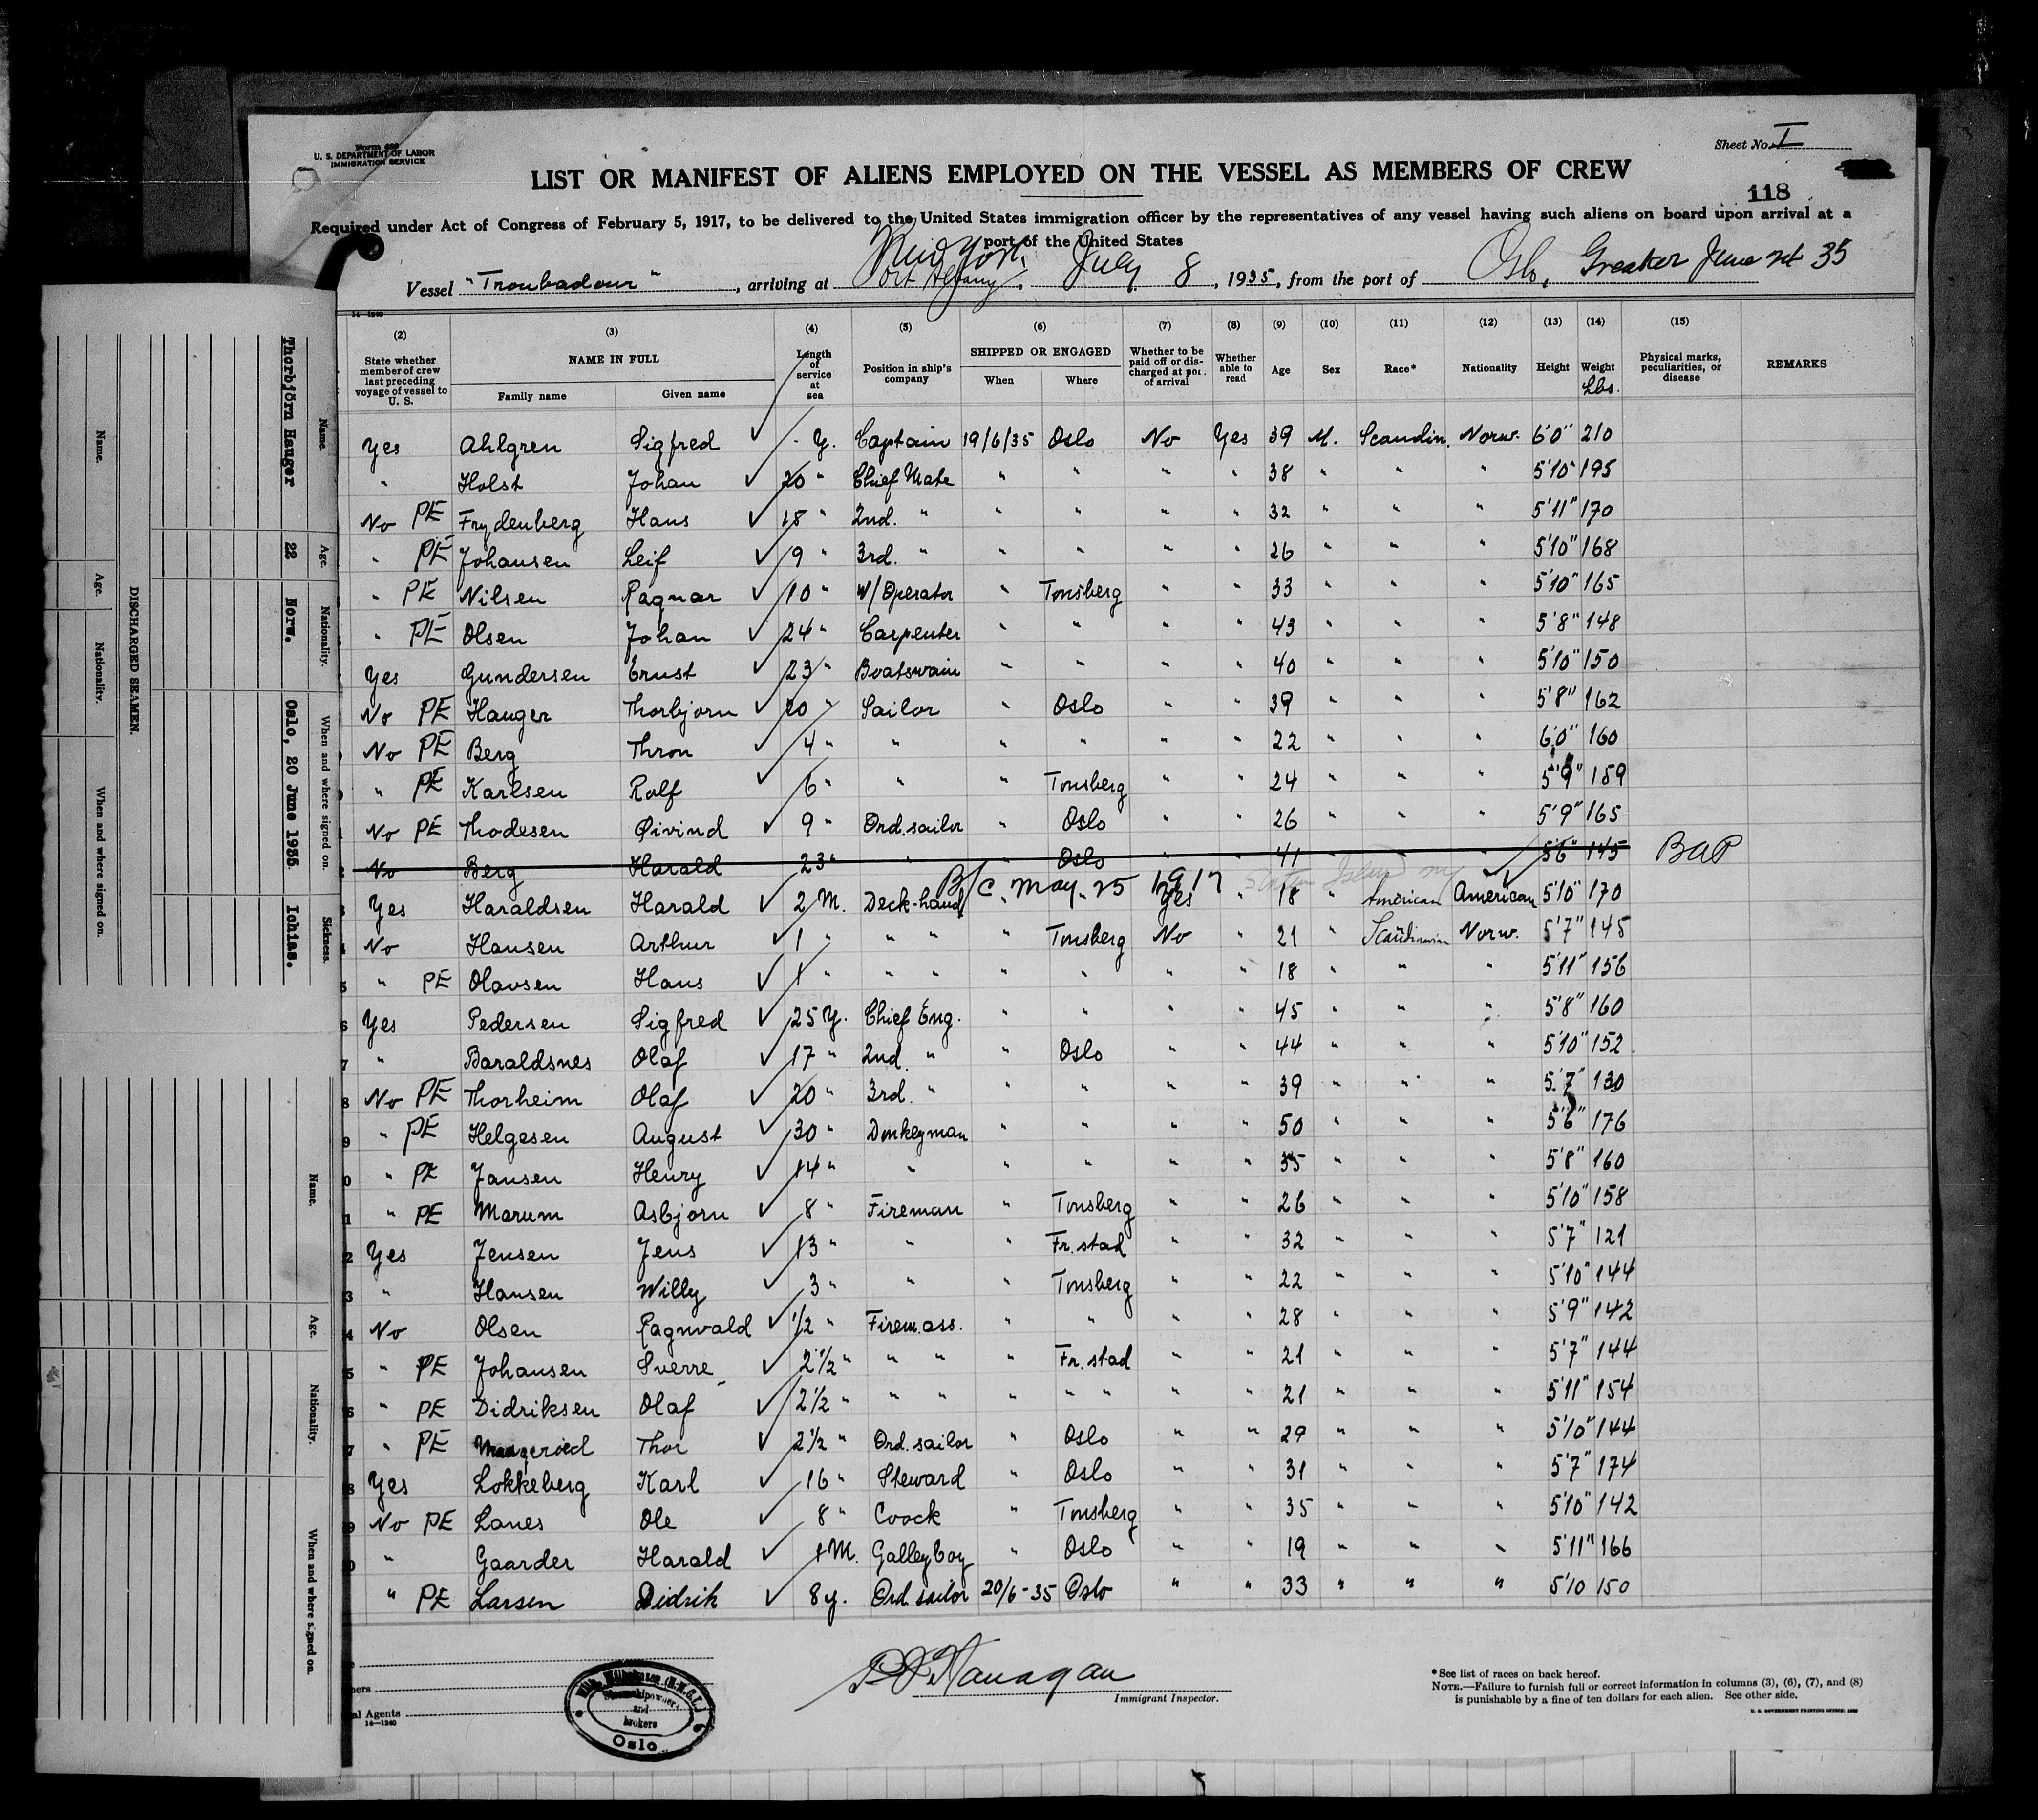 Form 689
U. S. DEPARTMENT OF LABOR
IMMIGRATION SERVICE
Sheet No. I
LIST OR MANIFEST OF ALIENS EMPLOYED ON THE VESSEL AS MEMBERS OF CREW
118
Required under Act of Congress of February 5, 1917, to be delivered to the United States immigration officer by the representatives of any vessel having such aliens on board upon arrival at a
port of the United States
New York
Vessel "Troubadour", arriving at Port Albany, July 8, 1935, from the port of Oslo, Greaker June 35
14—1240
(2) (3) (4) (5) (6) (7) (8) (9) (10) (11) (12) (13) (14) (15)
State whether member of crew last preceding voyage of vessel to U. S.
NAME IN FULL
Family name Given name
Length of service at sea
Position in ship's company
SHIPPED OR ENGAGED
When Where
Whether to be paid off or discharged at port of arrival
Whether able to read
Age Sex Race* Nationality Height Weight Lbs.
Physical marks, peculiarities, or disease
REMARKS
Yes Ahlgren Sigfred - Y. Captain 19/6/35 Oslo No Yes 39 M. Scandin. Norw. 6'0" 210
" Holst Johan 20 " Chief Mate " " " " 38 " " " 5'10" 195
No PE Frydenberg Hans 18 " 2nd. " " " " " 32 " " " 5'11" 170
" PE Johansen Leif 9 " 3rd. " " " " " 26 " " " 5'10" 168
" PE Nilsen Ragnar 10 " W/Operator " Tonsberg " " 33 " " " 5'10" 165
" PE Olsen Johan 24 " Carpenter " " " " 43 " " " 5'8" 148
Yes Gundersen Ernst 23 " Boatswain " " " " 40 " " " 5'10" 150
No PE Hauger Thorbjorn 20 " Sailor " Oslo " " 39 " " " 5'8" 162
No PE Berg Thron 4 " " " " " " 22 " " " 6'0" 160
" PE Karlsen Rolf 6 " " " Tonsberg " " 24 " " " 5'9" 159
No PE Thodesen Øivind 9 " Ord. sailor " Oslo " " 26 " " " 5'9" 165
No Berg Harald 23 " " " Oslo " " 41 " " " 5'6" 145 BAP
B/C May 25 1917 Staten Island NY
Yes Haraldsen Harald 2 M. Deck-hand " " Yes " 18 " American American 5'10" 170
No Hansen Arthur 1 " " " " Tonsberg No " 21 " Scandinavian Norw. 5'7" 145
" PE Olavsen Hans 1 " " " " " " " 18 " " " 5'11" 156
Yes Pedersen Sigfred 25 Y. Chief Eng. " " " " 45 " " " 5'8" 160
" Baraldsnes Olaf 17 " 2nd. " " Oslo " " 44 " " " 5'10" 152
No PE Thorheim Olaf 20 " 3rd. " " " " " 39 " " " 5'7" 130
" PE Helgesen August 30 " Donkeyman " " " " 50 " " " 5'6" 176
" PE Jansen Henry 14 " " " " " " 35 " " " 5'8" 160
" PE Marum Asbjorn 8 " Fireman " Tonsberg " " 26 " " " 5'10" 158
Yes Jensen Jens 13 " " " Fr. stad " " 32 " " " 5'7" 121
" Hansen Willy 3 " " " Tonsberg " " 22 " " " 5'10" 144
No Olsen Ragnvald 1/2 " Firem. ass. " " " " 28 " " " 5'9" 142
" PE Johansen Sverre 2 1/2 " " " " Fr. stad " " 21 " " " 5'7" 144
" PE Didriksen Olaf 2 1/2 " " " " " " " " 21 " " " 5'11" 154
" PE Thor 2 1/2 " Ord. sailor " Oslo " " 29 " " " 5'10" 144
Yes Lokkeberg Karl 16 " Steward " Oslo " " 31 " " " 5'7" 174
No PE Lanes Ole 8 " Coock " Tonsberg " " 35 " " " 5'10" 142
" Gaarder Harald 1 M. Galleyboy " Oslo " " 19 " " " 5'11" 166
" PE Larsen Didrik 8 y. Ord. sailor 20/6-35 Oslo " " 33 " " " 5'10 150
Immigrant Inspector.
al Agents
14—1240
Steamshipowners
and
brokers
Oslo
*See list of races on back hereof.
NOTE.—Failure to furnish full or correct information in columns (3), (6), (7), and (8)
is punishable by a fine of ten dollars for each alien. See other side.
U. S. GOVERNMENT PRINTING OFFICE: 1932
DISCHARGED SEAMEN.
Name. Age. Nationality. When and where signed on. Sickness.
Thorbjörn Hauger 22 Norw. Oslo, 20 June 1935. Ichias.
Name. Age. Nationality. When and where signed on.
Name. Age. Nationality. When and where signed on.